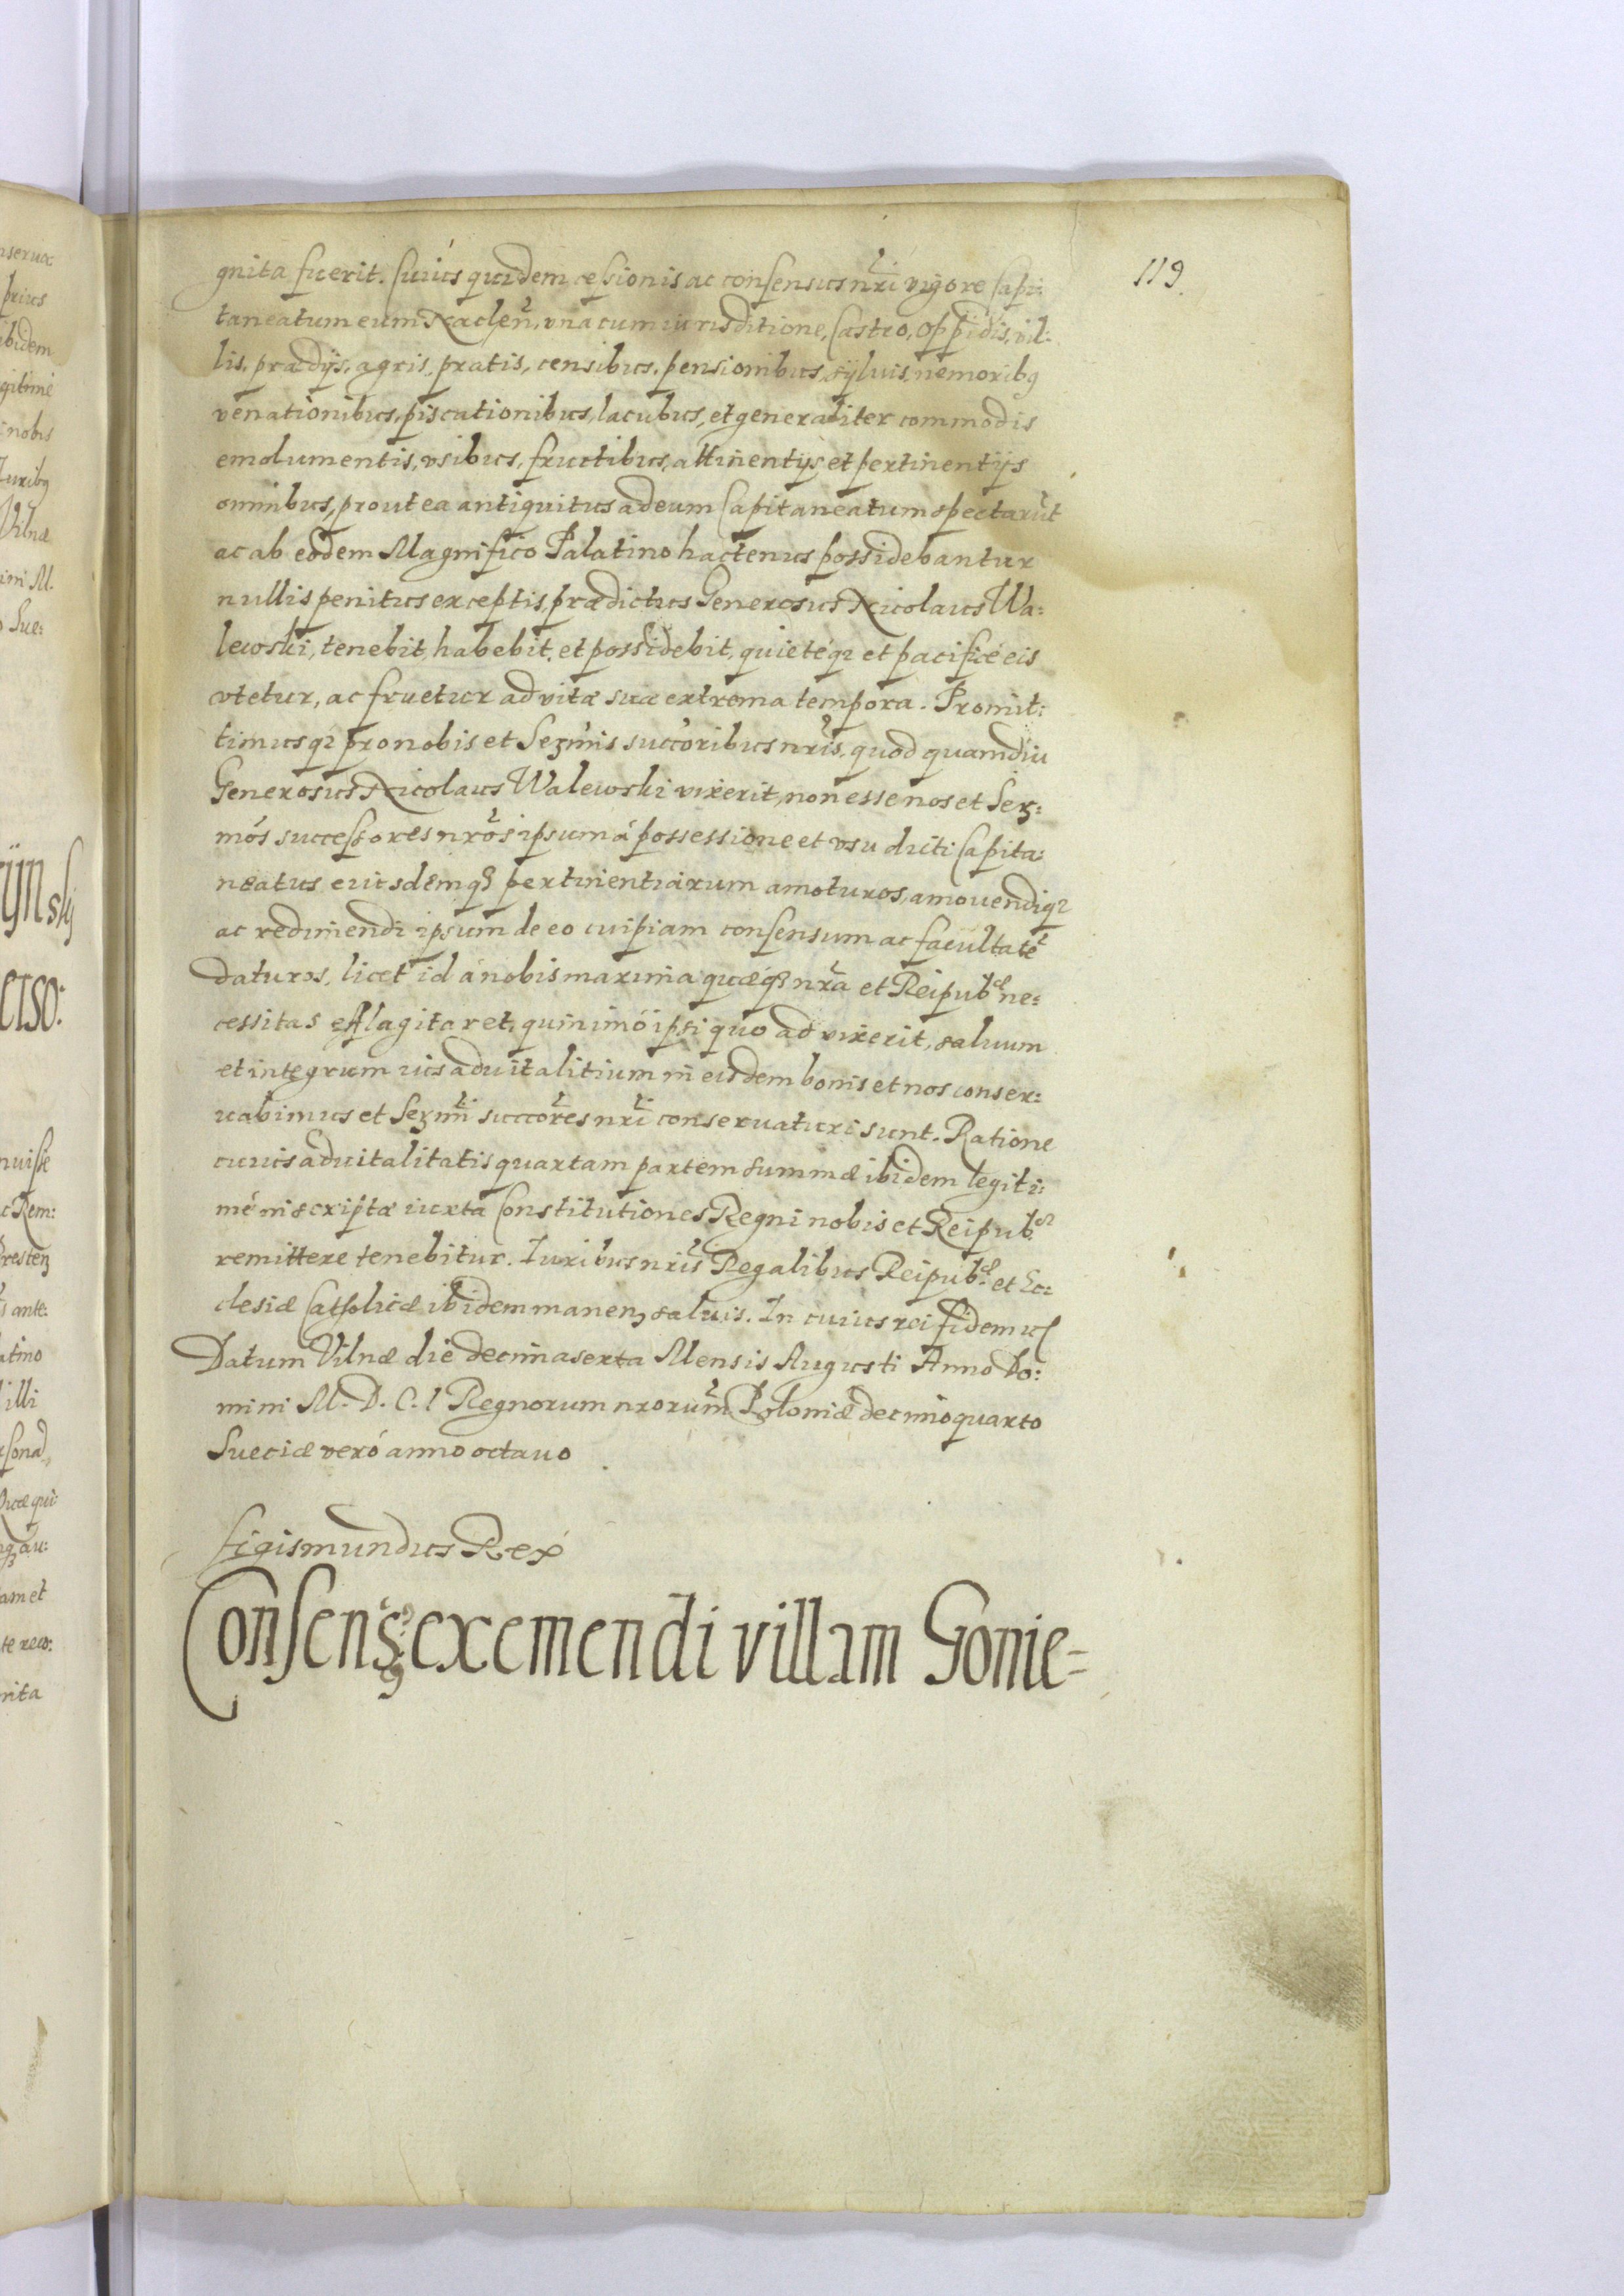 119.
gnita fuerit. Cuius quidem cessionis ac consensus nr̃i vigore Capi:
taneatum eum Naclen̄, vna cum iurisditione, Castro, Oppidis, vil:
lis, prædijs, agris, pratis, censibus, pensionibus, syluis, nemoribq
venationibus, piscationibus, lacubus, et generaliter commodis
emolumentis, vsibus, fructibus, attinentijs et pertinentijs
omnibus, prout ea antiquitus ad eum Capitaneatum spectarũt
ac ab eodem Magnifico Palatino hactenus possidebantur
nullis penitus exceptis, prædictus Generosus Nicolaus Wa:
lewski, tenebit, habebit, et possidebit, quietéqꝫ et pacificé eis
vtetur, ac fruetur ad vitæ suæ extrema tempora. Promit:
timusqꝫ pro nobis et Serm̃is succoribus nr̃is, quod quamdiu
Generosus Nicolaus Walewski vixerit, non esse nos et Ser:
mós successores nr̃os ipsum á possessione et vsu dicti Capita:
neatus eiusdemqꝫ pertinentiarum amoturos, amouendiqꝫ
ac redimendi ipsum de eo cuipiam consensum ac facultatẽ
daturos, licet id á nobis maxima quæqꝫ nr̃a et Reipubcæ ne:
cessitas efflagitaret, quinimó ipsi quo ad vixerit, saluum
et integrum ius aduitalitium in eisdem bonis et nos conser:
uabimus et Serm̃i succores nr̃i conseruaturi sunt. Ratione
cuius aduitalitatis quartam partem summæ ibidem legiti:
mé inscriptæ iuxta Constitutiones Regni nobis et Reipubcæ
remittere tenebitur. Iuribus nr̃is Regalibus Reipub:cæ et Ec:
clesiæ Catholicæ ibidem manenꝫ saluis. In cuius rei fidem &c
Datum Vilnæ die decimasexta Mensis Augusti Anno Do:
mini M. D. C. I Regnorum nrorum̃ Poloniæ decimoquarto
Sueciæ veró anno octauo
Sigismundus Rex
Consensꝰ exemendi villam Gonie=